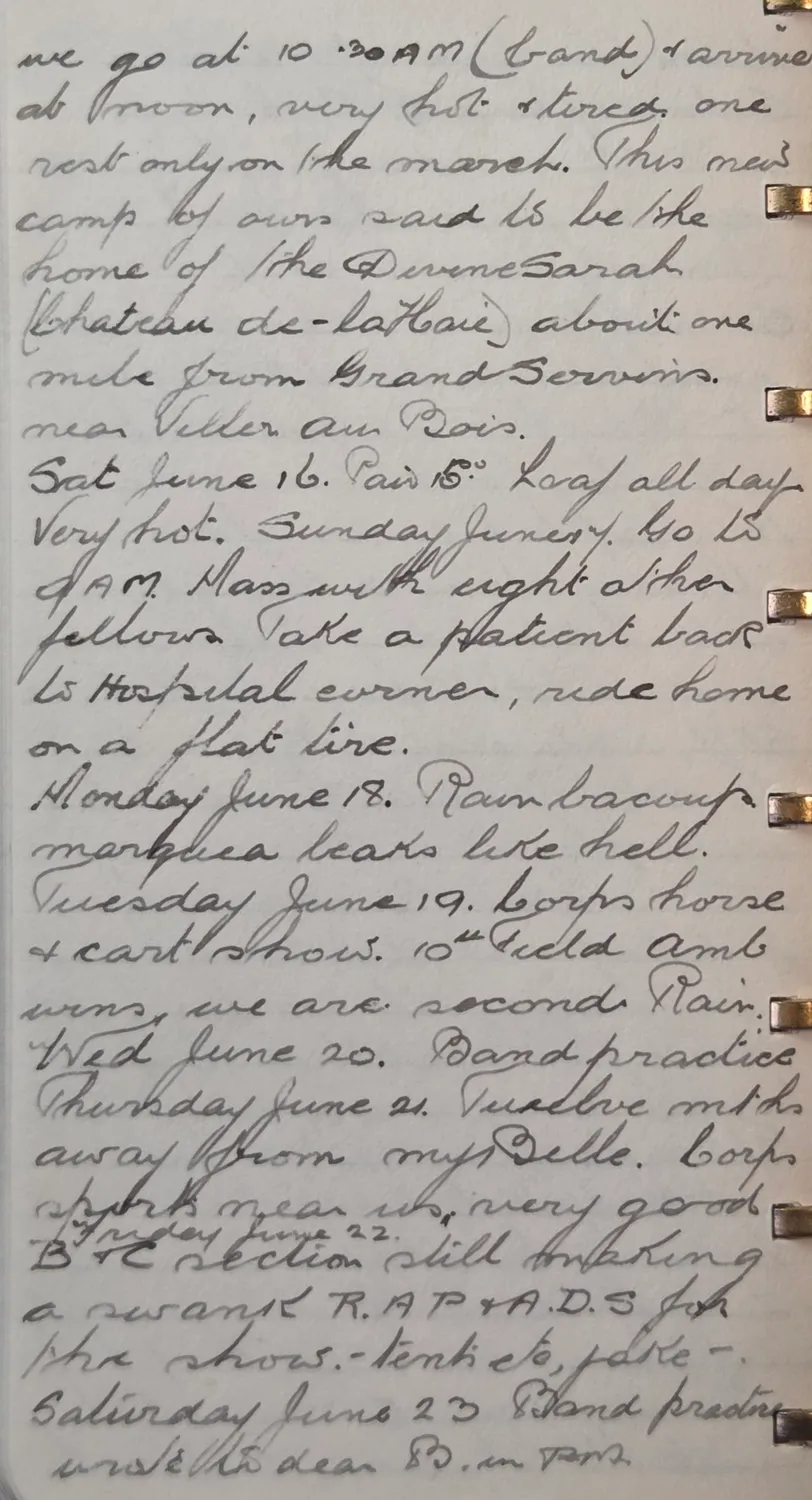 we go at 10.30 AM (band) & arrive
at noon, very hot & tired. one
rest only on the march. This new
camp of ours said to be the
home of the Divine Sarah
(Chateau de-la Haie) about one
mile from Grand Servins.
near Viller au Bois.
Sat June 16. Paid 15.00 Loaf all day
Very hot. Sunday June 17. Go to
9 AM. Mass with eight other
fellows Take a patient back
to Hospital corner, ride home
on a flat tire.
Monday June 18. Rain
marquea leaks like hell.
Tuesday June 19. Corps horse
& cart show. 10th Field Amb
wins, we are second. Rain.
Wed June 20. Band practice
Thursday June 21. Twelve mths
away from my Belle. Corps
sports near us, very good
Friday June 22.
B & C section still making
a swank R.A.P & A.D.S for
the show. - tents etc, jake -.
Saturday June 23 Band practice
wrote to dear B. in